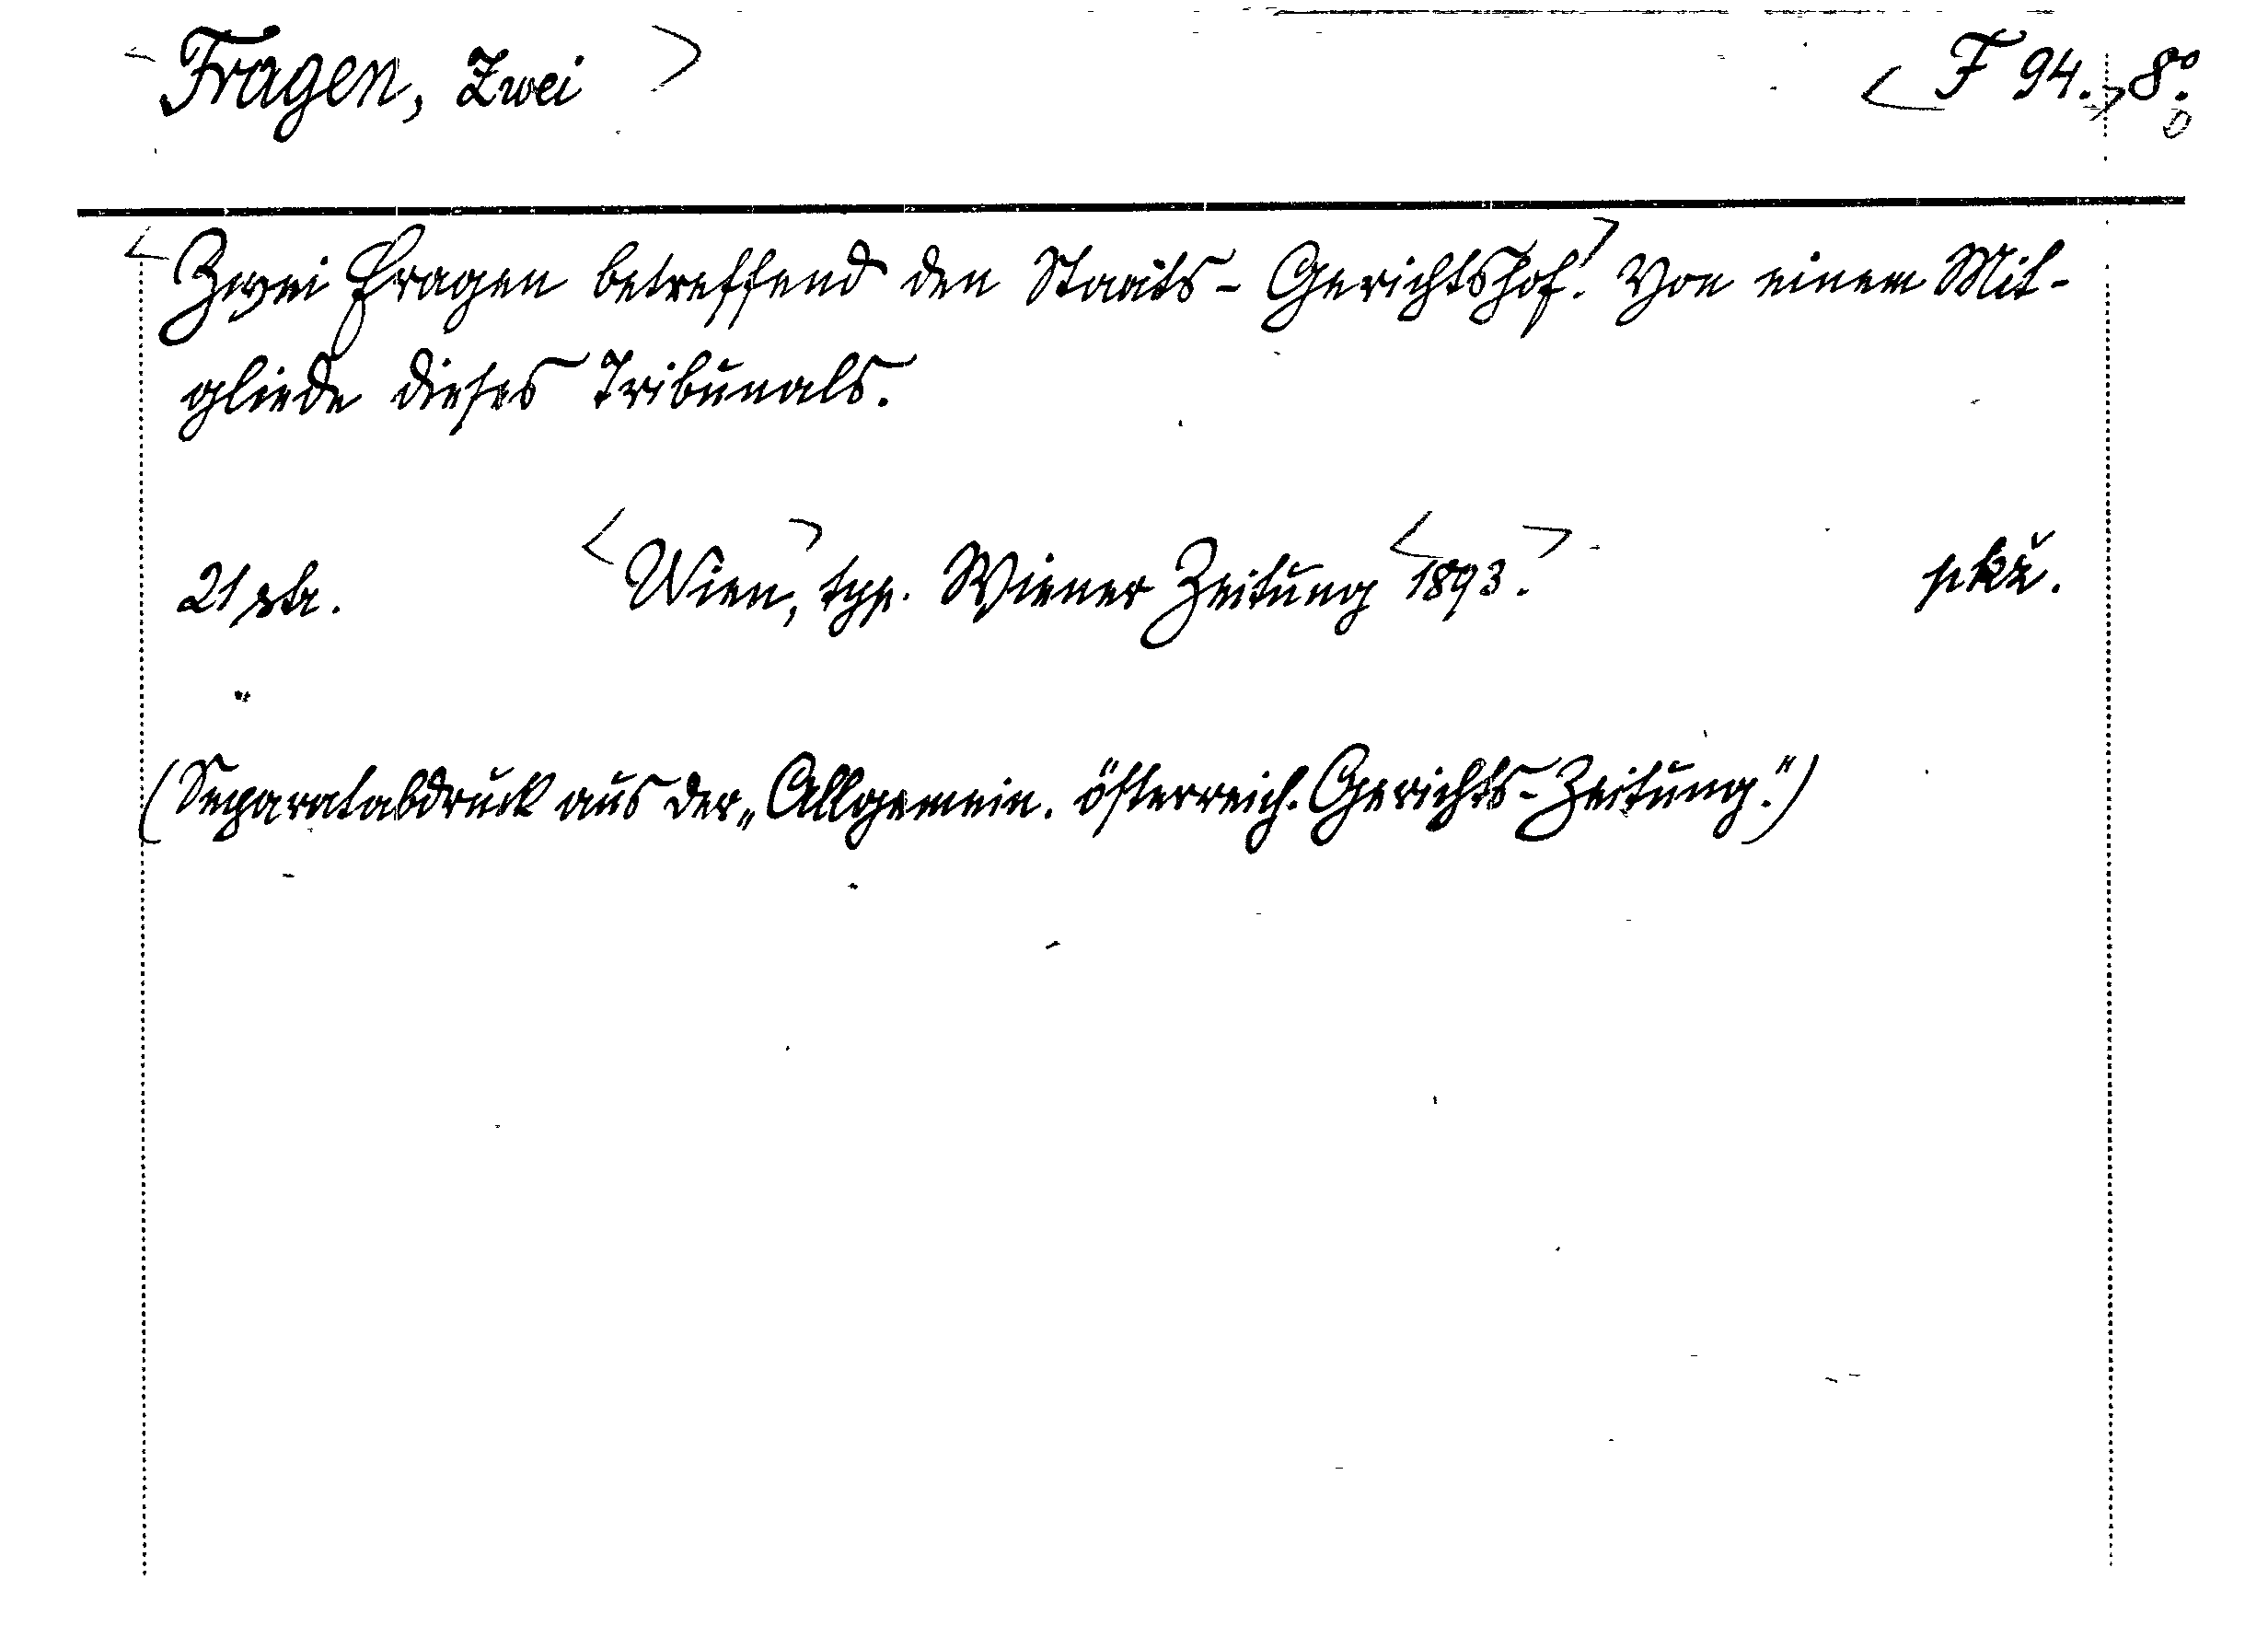 Fragen, Zwei F 94. 8º
Zwei Fragen betreffend den Staats-Gerichtshof. Von einem Mit-
gliede dieses Tribunals.
21 str. Wien, typ. Wiener Zeitung 1893.
(Separatabdruck aus der „Allgemein. österreich. Gerichts-Zeitung.")